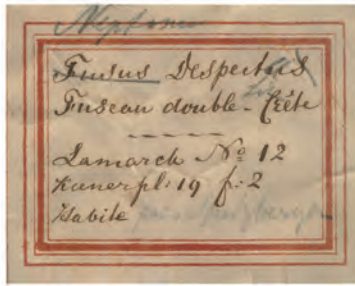 Neptunea
Fusus Despectus
Fuseau double-Crête
Lamarck Nº 12
Kiener pl: 19 f: 2
Habite